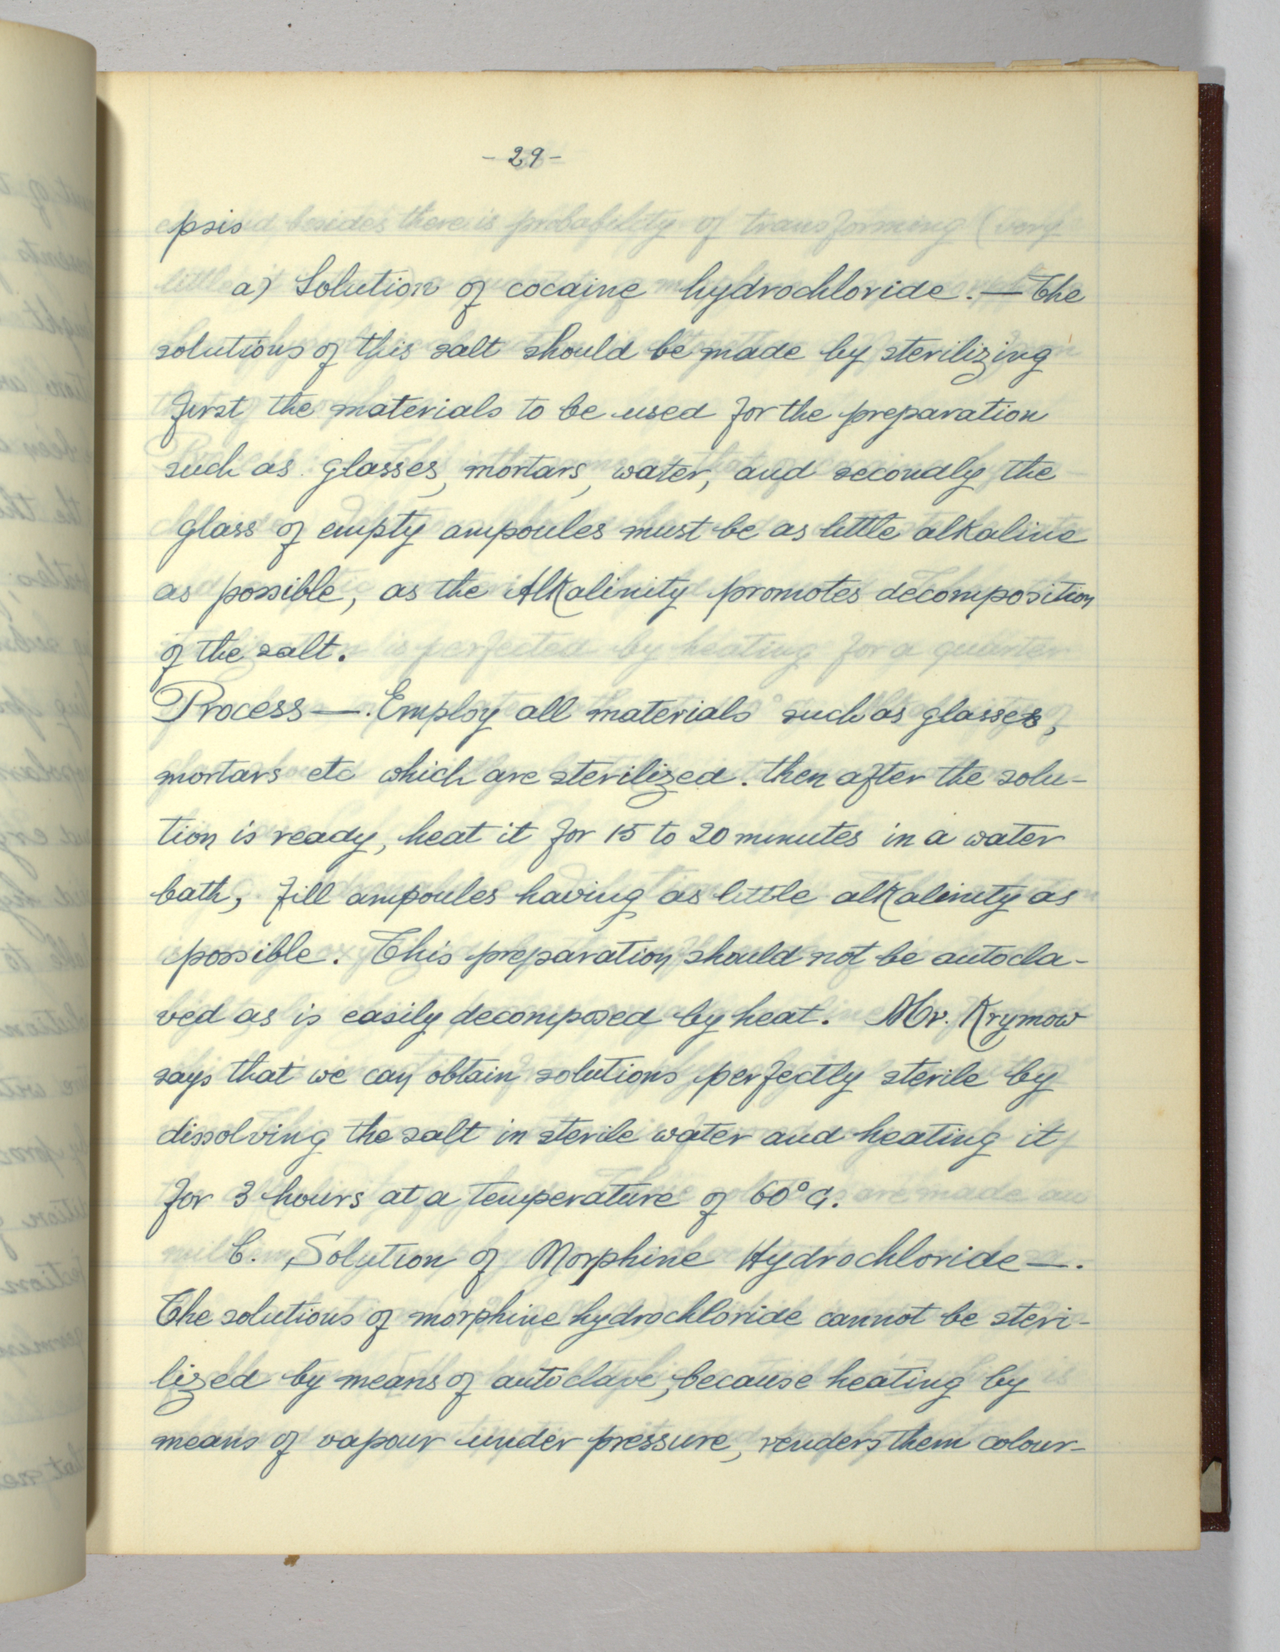 - 29 -
psis
a) Solution of cocaine hydrochloride. — The
solutions of this salt should be made by sterilizing
first the materials to be used for the preparation
such as glasses, mortars, water, and secondly the
glass of empty ampoules must be as little alkaline
as possible, as the Alkalinity promotes decomposition
of the salt.
Process —. Employ all materials such as glasses,
mortars etc which are sterilized. then after the solu-
tion is ready, heat it for 15 to 20 minutes in a water
bath, fill ampoules having as little alkalinity as
possible. This preparation should not be autocla-
ved as is easily decomposed by heat. Mr. Krymow
says that we can obtain solutions perfectly sterile by
dissolving the salt in sterile water and heating it
for 3 hours at a temperature of 60° C.
C. Solution of Morphine Hydrochloride —.
The solutions of morphine hydrochloride cannot be steri-
lized by means of autoclave, because heating by
means of vapour under pressure, renders them colour-